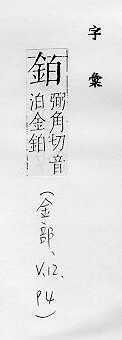 字彙
鉑
弼角切音
泊金鉑
(金部、V.12、P4)